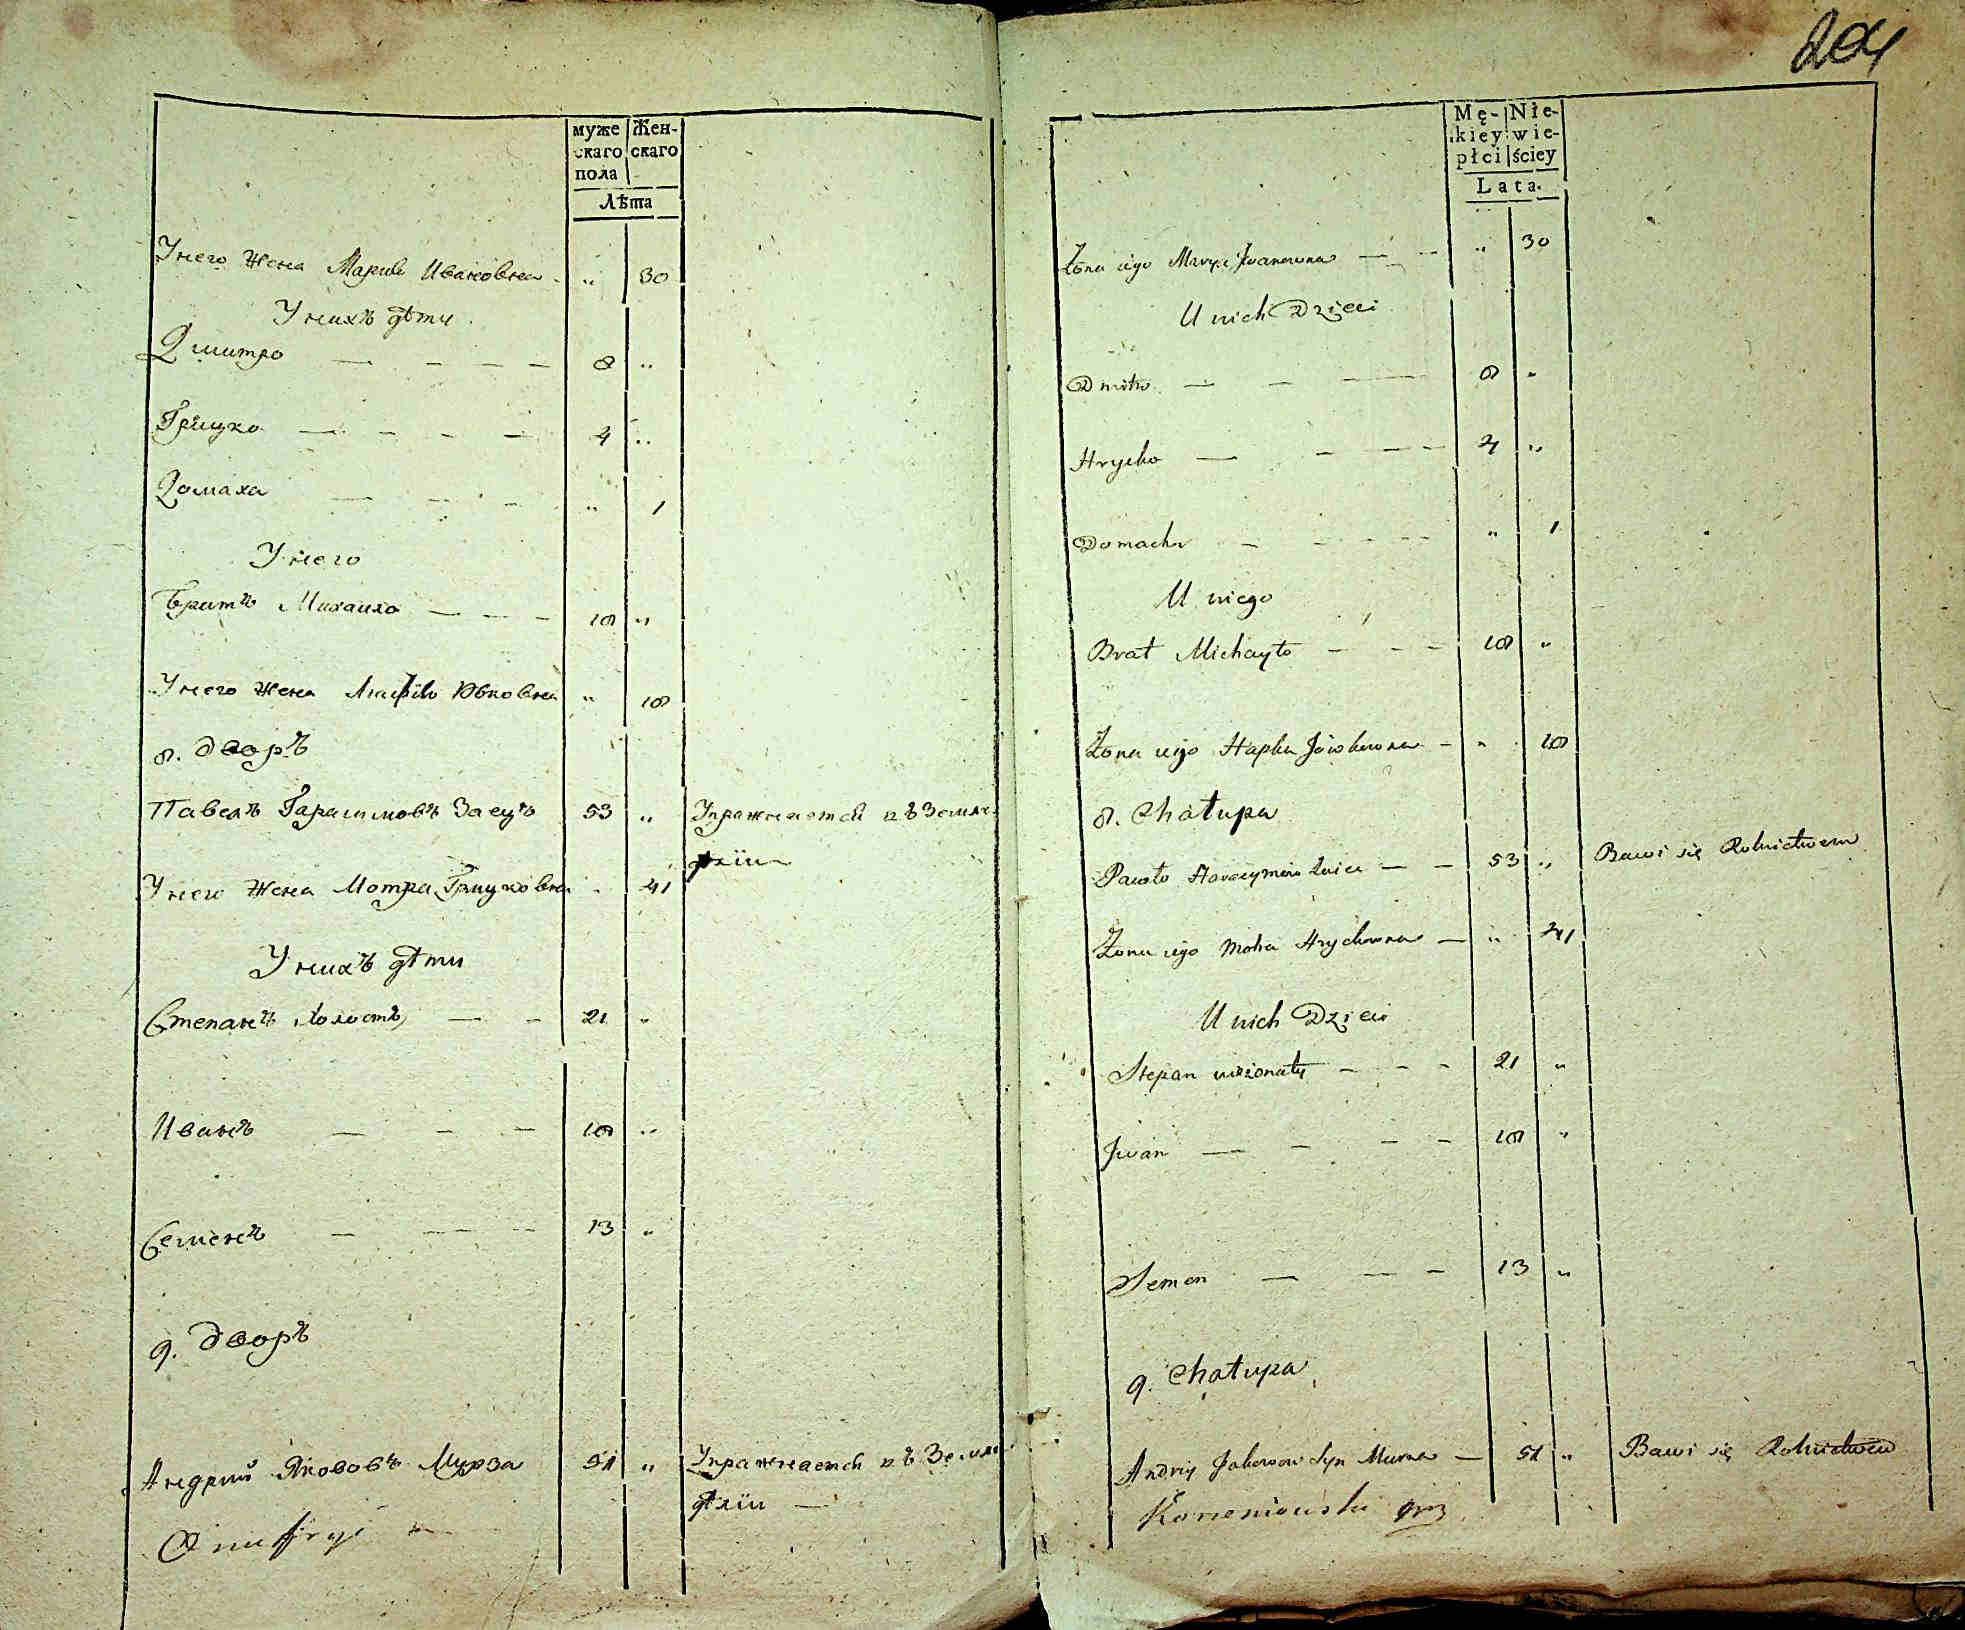 муже
скаго
пола
Жен-
скаго
Лѣта
У него жена Марія Ивановна „ 30
У нихъ дѣти
Дмитро — — — — 8 „
Грицко — — — — 4 „
Домаха — — — „ 1
У него
Братъ Михайло — — — 18 „
У него жена Юсковна „ 18
8. дворъ
Павелъ Гарасимовъ Заецъ 53 „ Упражняется въ Земле-
дѣліи
У него жена Мотра Грицковна „ 41
У нихъ дѣти
Степанъ холостъ — — 21 „
Иванъ — — — 18 „
Семенъ — — — 13 „
9. дворъ
Андрий Якововъ Мурза 51 „ Упражняется въ Земле
дѣліи —
Onufryi
204
Mę-
skiey
płci
Nie-
wie-
ściey
Lata.
Żona iego Marya Iwanowna — — „ 30
U nich Dzieci
Dmitro — — — 8 „
Hrycko — — — — 4 „
Domacha — — — — „ 1
U niego
Brat Michayło — — — 18 „
Żona iego Hapka — „ 18
8. Chałupa
Pawło — — 53 „ Bawi się Rolnictwem
Żona iego Motra Hryckowna — „ 41
U nich Dzieci
Stepan nieżonaty — — — 21 „
Iwan — — — — 18 „
Semen — — — 13 „
9. Chałupa
Andriy Jakowow Syn Murza — 51 „ Bawi się Rolnictwem